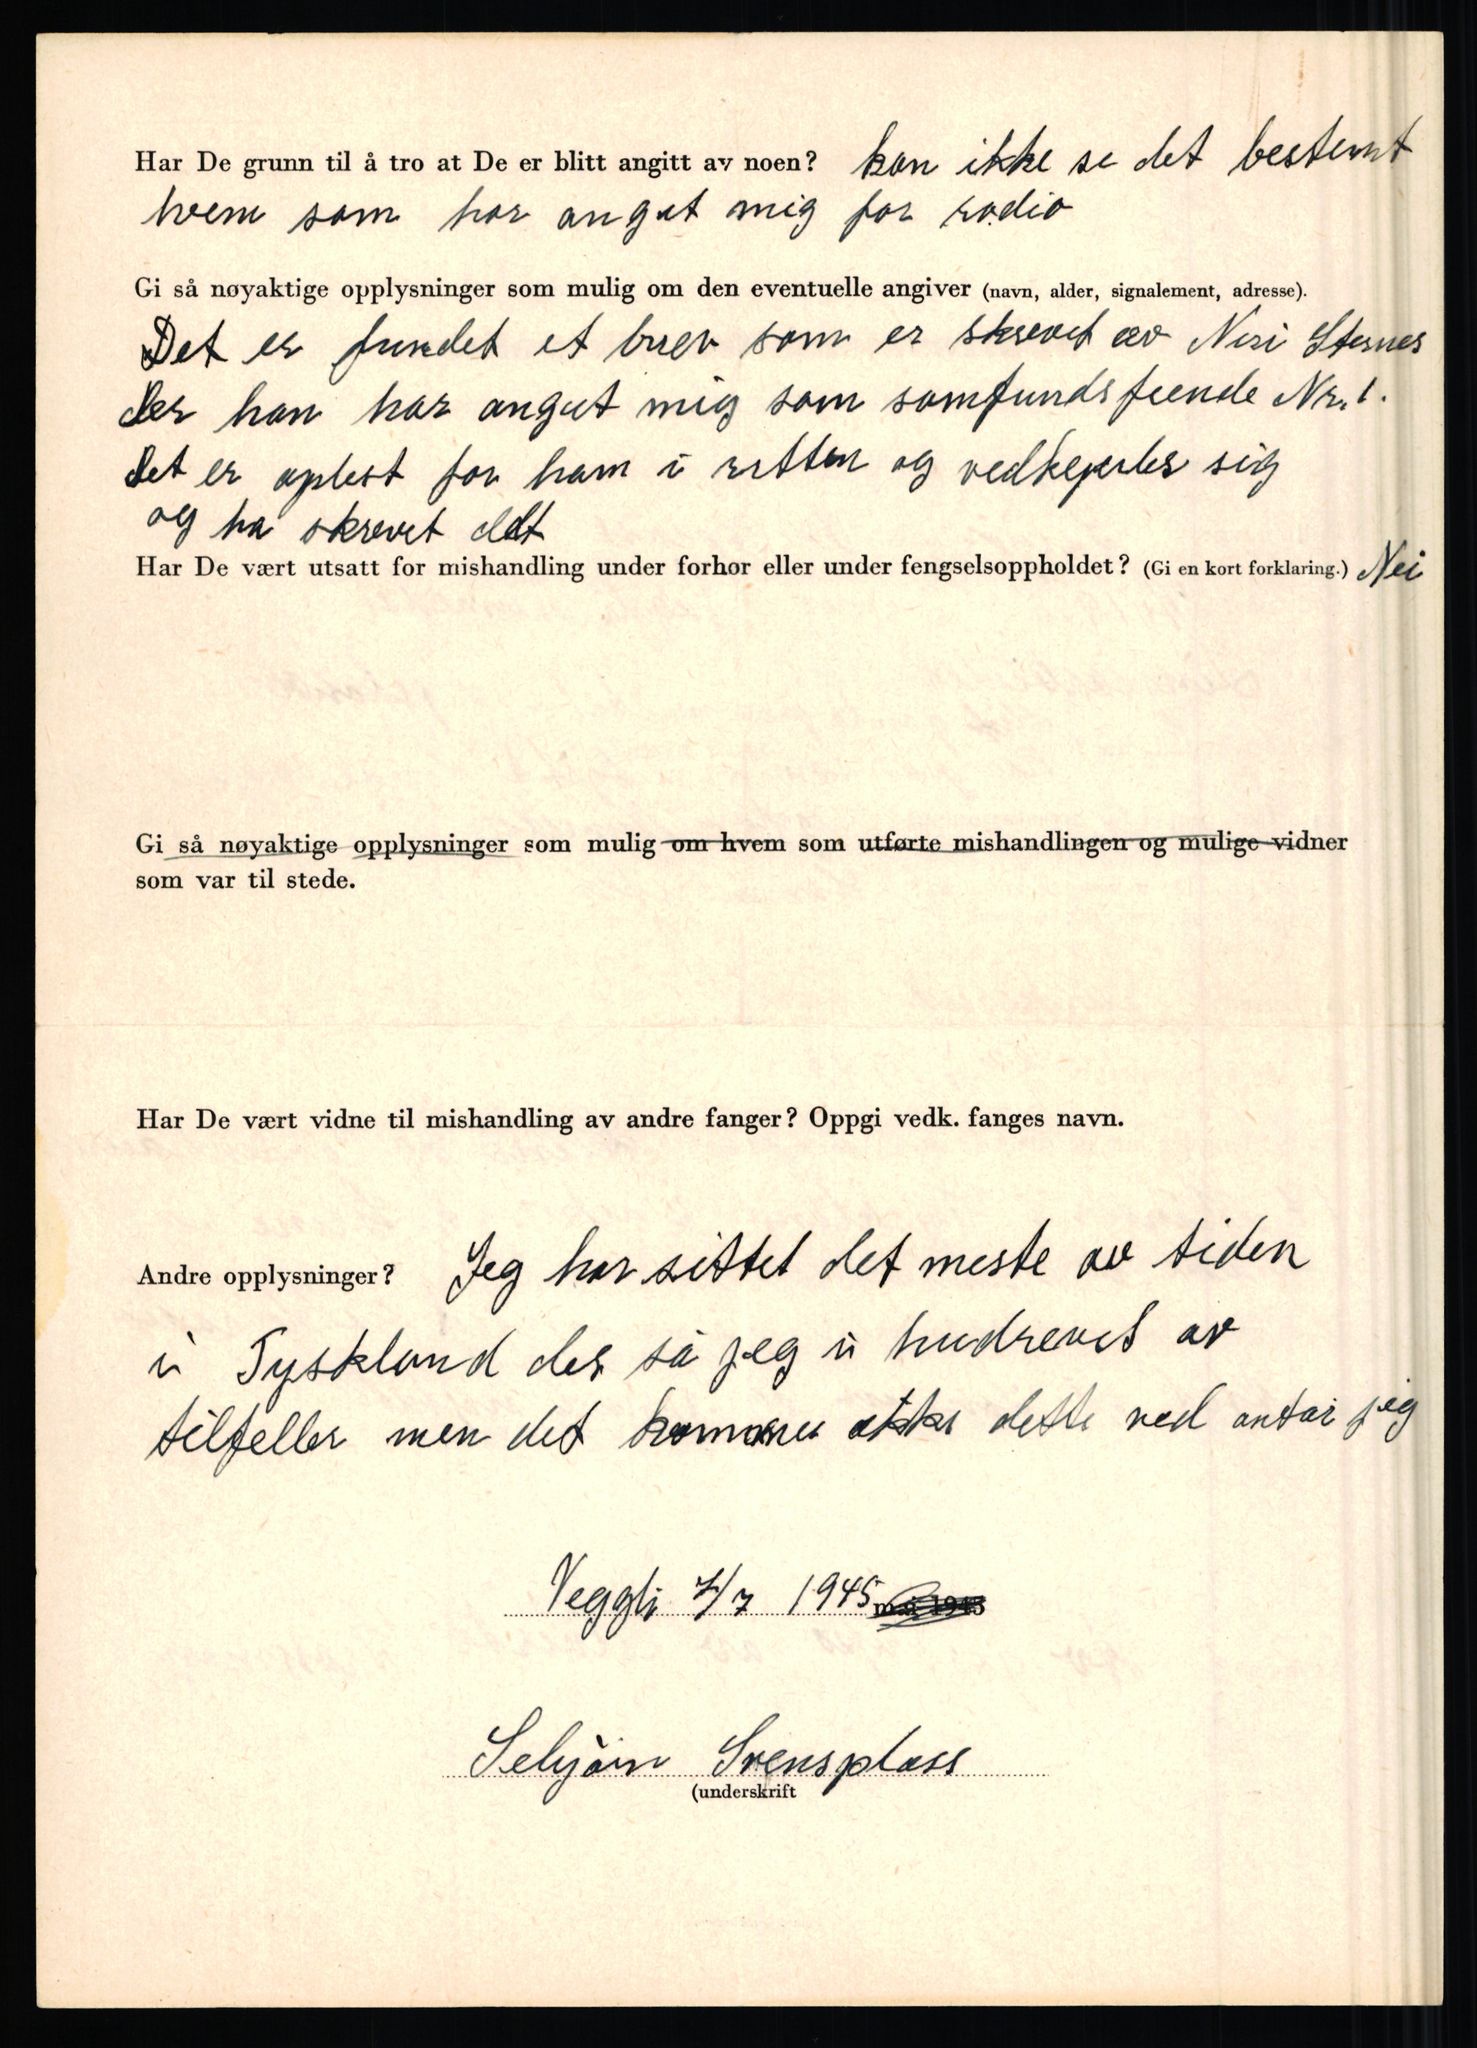 Har De grunn til å tro at De er blitt angitt av noen? kan ikke se det bestemt
hvem som har anget mig for radio
Gi så nøyaktige opplysninger som mulig om den eventuelle angiver (navn, alder, signalement, adresse).
Det er fundet et brev som er skrevet av Neri Sternes
der han har anget mig som samfundsfiende Nr. 1.
Det er oplest for ham i retten og vedkejerles sig
og ha skrevet det
Har De vært utsatt for mishandling under forhør eller under fengselsoppholdet? (Gi en kort forklaring.) Nei
Gi så nøyaktige opplysninger som mulig om hvem som utførte mishandlingen og mulige vidner
som var til stede.
Har De vært vidne til mishandling av andre fanger? Oppgi vedk. fanges navn.
Andre opplysninger? Jeg har sittet det meste av tiden
i Tyskland der så jeg i hudrevet av
tilfeller men det kommer ikke dette ved antar jeg
Veggli 7/7 1945 mai 1945
Svensplass
(underskrift